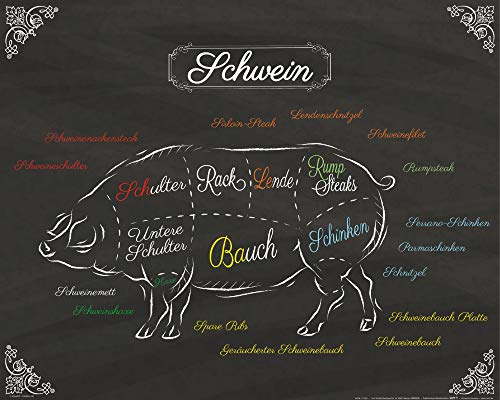 Schwein
Lendenschnitzel
Sirloin-Steak
Schweinefilet
Schweinenackensteak
Schweineschulter
Rumpsteak
Schulter
Rack
Lende
Rump
Steaks
Untere
Schulter
Bauch
Schinken
Serrano-Schinken
Parmaschinken
Schnitzel
Haxe
Schweinemett
Schweinshaxe
Spare Ribs
Schweinebauch Platte
Schweinebauch
Geräucherter Schweinebauch